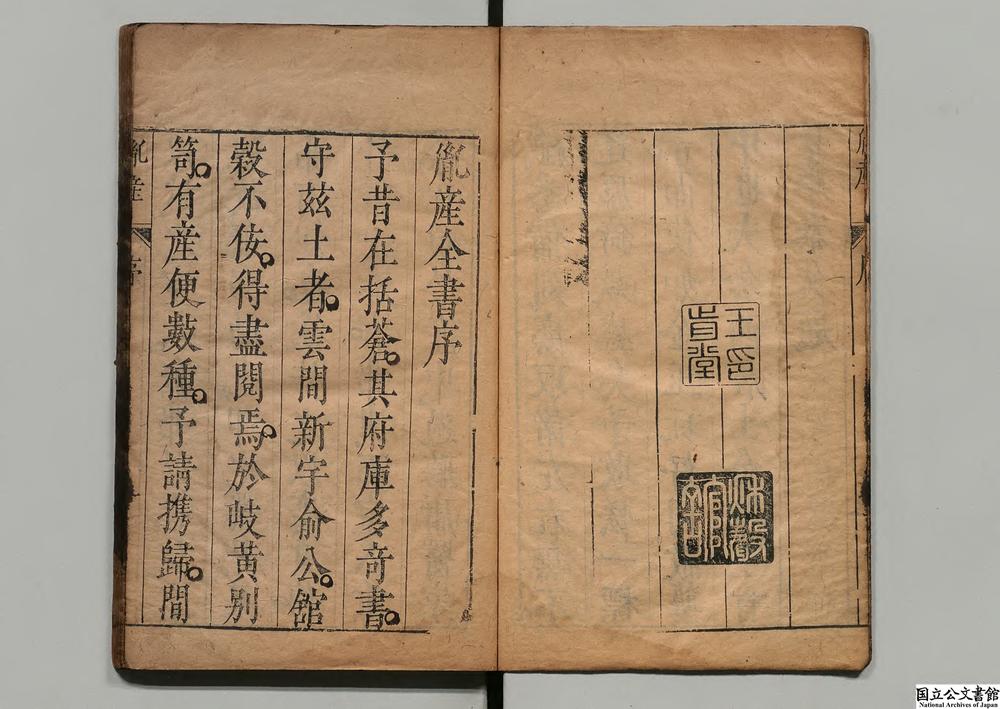 王印
肯堂
胤産全書序
予昔在括蒼。其府庫多奇書。
守茲土者。雲間新宇俞公。館
穀不佞。得盡閱焉。於岐黃別
笥。有産便數種。予請携歸。間
胤産
序
国立公文書館
National Archives of Japan